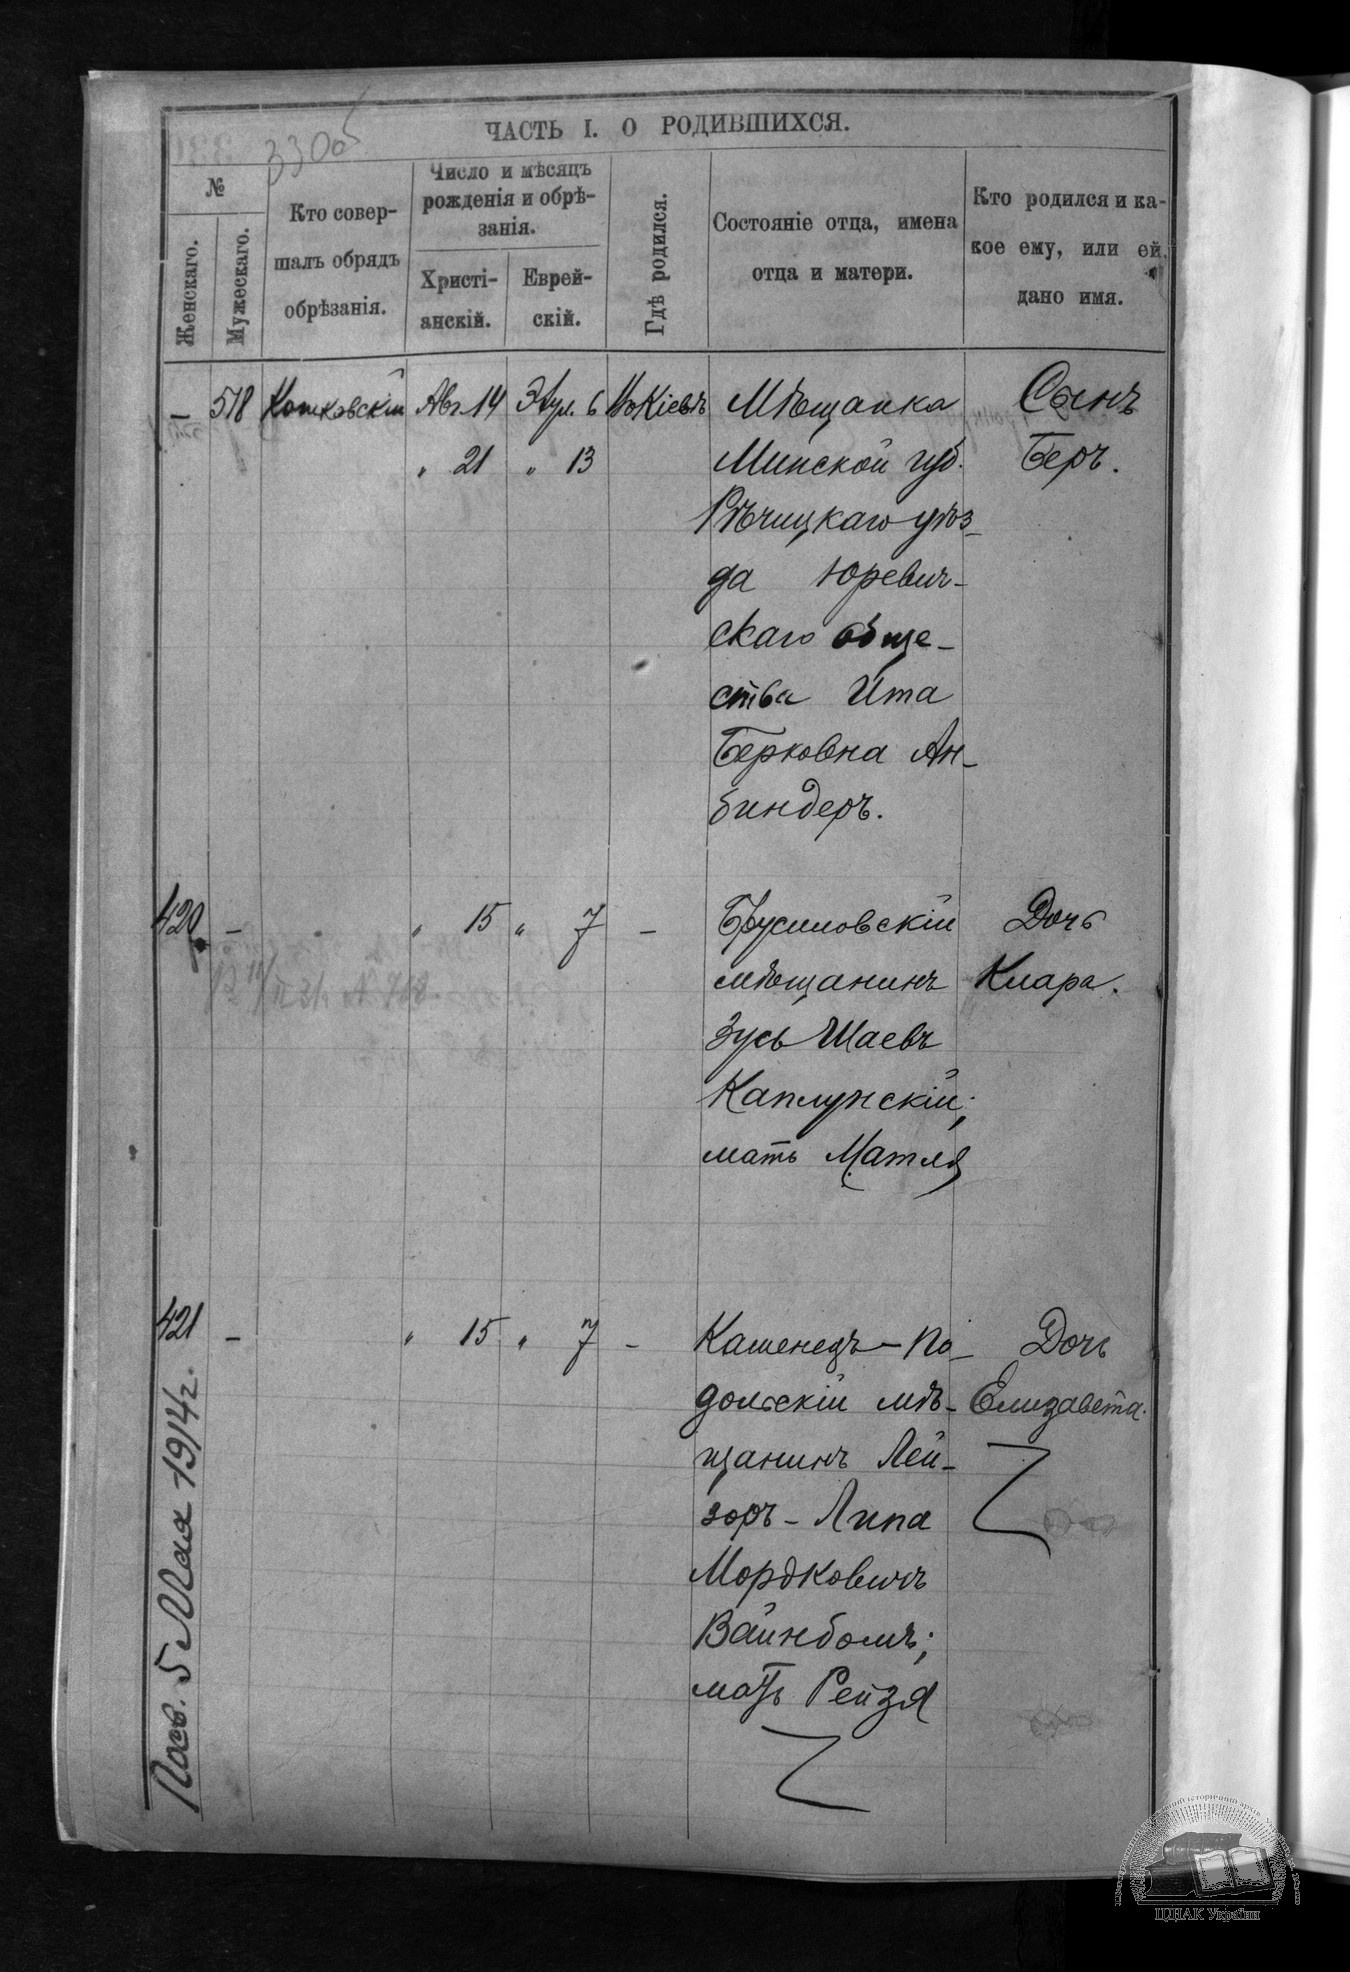 330 об
ЧАСТЬ I. О РОДИВШИХСЯ.
№
Женскаго.
Мужескаго.
Кто совер-
шалъ обрядъ
обрѣзанія.
Число и мѣсяцъ
рожденія и обрѣ-
занія.
Христі-
анскій.
Еврей-
скій.
Гдѣ родился.
Состояніе отца, имена
отца и матери.
Кто родился и ка-
кое ему, или ей,
дано имя.
– 518 Котковскій Авг. 14 Элул. 6 Въ Кіевѣ Мѣщанка Сынъ
" 21 " 13 Минской губ. Беръ.
Рѣчицкаго уѣз-
да Юревич-
скаго обще-
ства Ита
Берковна Ан-
биндеръ.
420 – " 15 " 7 – Брусиловскій Дочь
мѣщанинъ Клара.
Зусь Шаевъ
Каплунскій;
мать Матля
421 – " 15 " 7 – Каменецъ-По-
дольскій мѣ-
щанинъ Лей-
зоръ-Липа
Мордковичъ
Вайнбомъ;
мать Рейзя
Дочь
Елизавета.
Посв. 5 Мая 1914 г.
ЦДІАК України